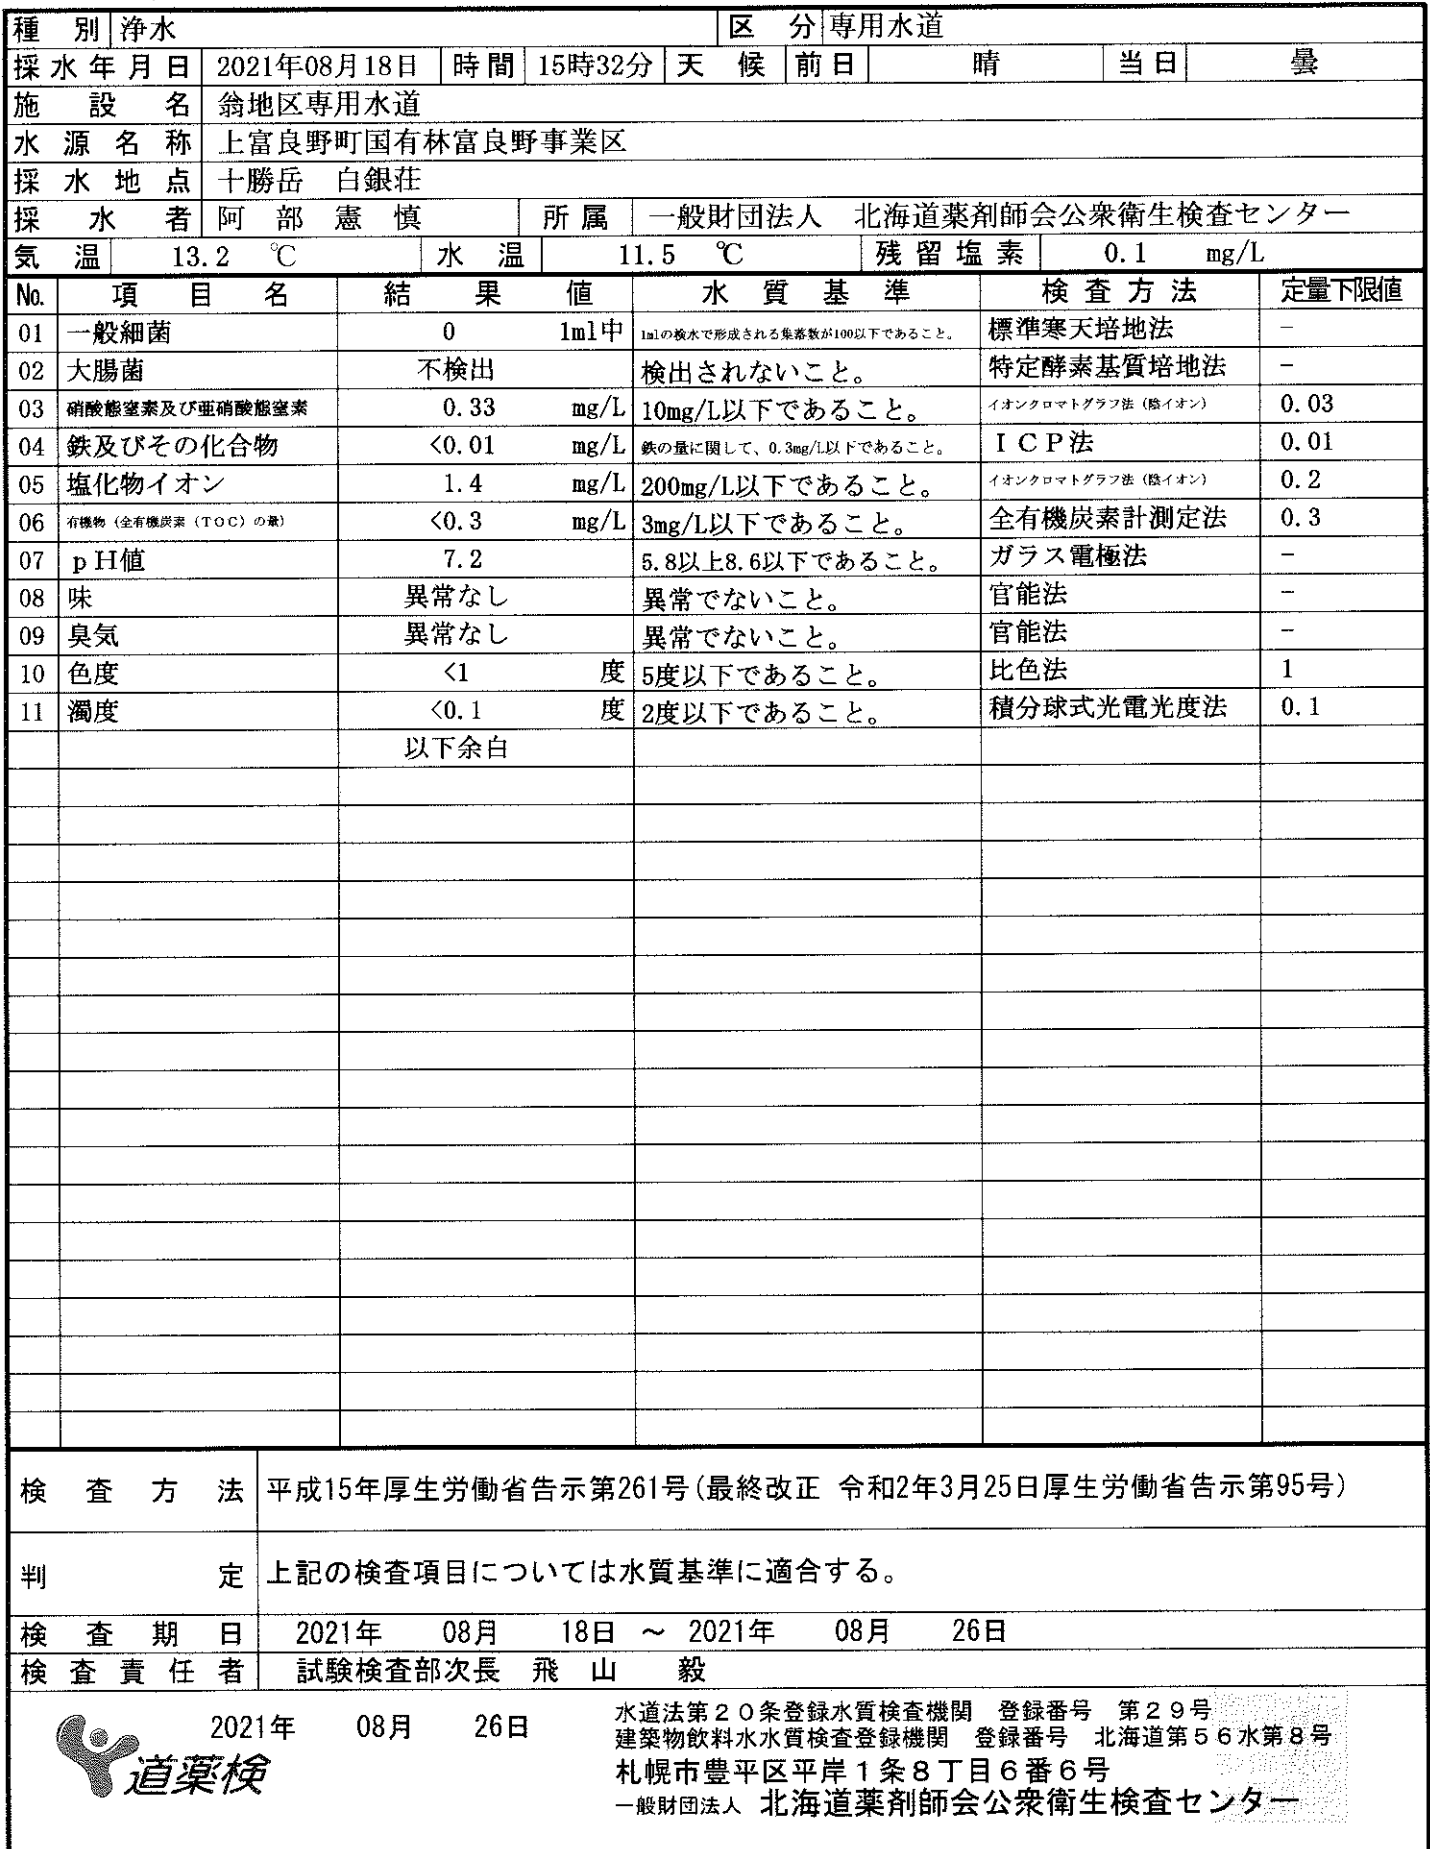 種 別 浄水 区 分 専用水道
採水年月日 2021年08月18日 時間 15時32分 天 候 前日 晴 当日 曇
施 設 名 翁地区専用水道
水 源 名 称 上富良野町国有林富良野事業区
採 水 地 点 十勝岳 白銀荘
採 水 者 阿 部 憲 慎 所属 一般財団法人 北海道薬剤師会公衆衛生検査センター
気 温 13.2 ℃ 水 温 11.5 ℃ 残留塩素 0.1 mg/L
No. 項 目 名 結 果 値 水 質 基 準 検査方法 定量下限値
01 一般細菌 0 1ml中 1mlの検水で形成される集落数が100以下であること。 標準寒天培地法 －
02 大腸菌 不検出 検出されないこと。 特定酵素基質培地法 －
03 硝酸態窒素及び亜硝酸態窒素 0.33 mg/L 10mg/L以下であること。 イオンクロマトグラフ法（陰イオン） 0.03
04 鉄及びその化合物 <0.01 mg/L 鉄の量に関して、0.3mg/L以下であること。 ＩＣＰ法 0.01
05 塩化物イオン 1.4 mg/L 200mg/L以下であること。 イオンクロマトグラフ法（陰イオン） 0.2
06 有機物（全有機炭素（ＴＯＣ）の量） <0.3 mg/L 3mg/L以下であること。 全有機炭素計測定法 0.3
07 ｐＨ値 7.2 5.8以上8.6以下であること。 ガラス電極法 －
08 味 異常なし 異常でないこと。 官能法 －
09 臭気 異常なし 異常でないこと。 官能法 －
10 色度 <1 度 5度以下であること。 比色法 1
11 濁度 <0.1 度 2度以下であること。 積分球式光電光度法 0.1
以下余白
検 査 方 法 平成15年厚生労働省告示第261号(最終改正 令和2年3月25日厚生労働省告示第95号)
判 定 上記の検査項目については水質基準に適合する。
検 査 期 日 2021年 08月 18日 ～ 2021年 08月 26日
検査責任者 試験検査部次長 飛 山 毅
2021年 08月 26日
道薬検
水道法第２０条登録水質検査機関 登録番号 第２９号
建築物飲料水水質検査登録機関 登録番号 北海道第５６水第８号
札幌市豊平区平岸１条８丁目６番６号
一般財団法人 北海道薬剤師会公衆衛生検査センター